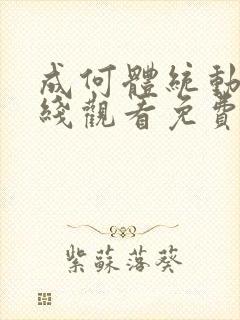 成何體統動
綫觀看免費
紫蘇落葵